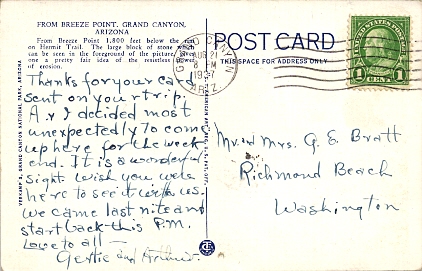 FROM BREEZE POINT, GRAND CANYON,
ARIZONA
From Breeze Point 1,800 feet below the rim
on Hermit Trail. The large block of stone which
can be seen in the foreground of the picture, gives
one a pretty fair idea of the resistless power
of erosion.
Thanks for your card
sent on your trip.
A. & I decided most
unexpectedly to come
up here for the week
end. It is a wonderful
sight wish you were
here to see it with us.
We came last nite and
start back this P.M.
Love to all —
Gertie and Arthur.
VERKAMP'S, GRAND CANYON NATIONAL PARK, ARIZONA
GRAND CANYON
AUG 21
8 PM
1937
ARIZ.
POST CARD
THIS SPACE FOR ADDRESS ONLY
UNITED STATES POSTAGE
1 CENT 1
Mr. and Mrs. G. E. Bratt
Richmond Beach
Washington